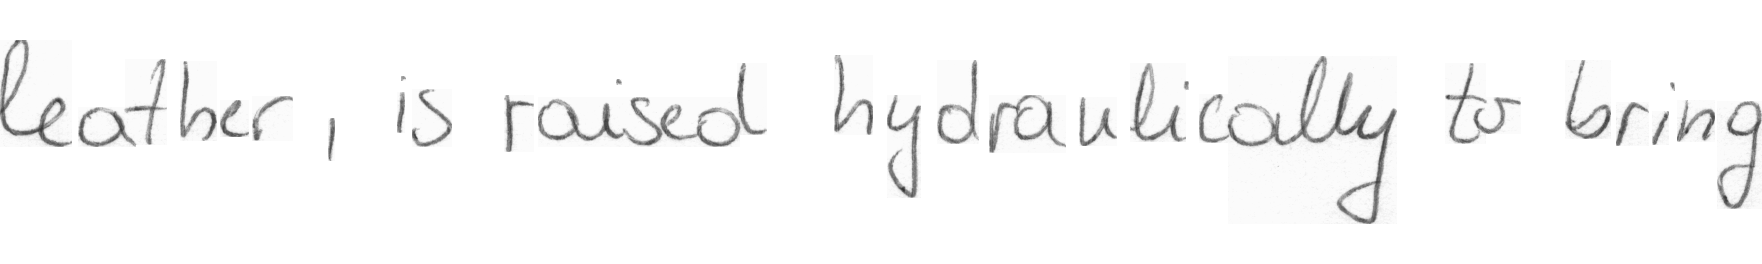 leather, is raised hydraulically to bring